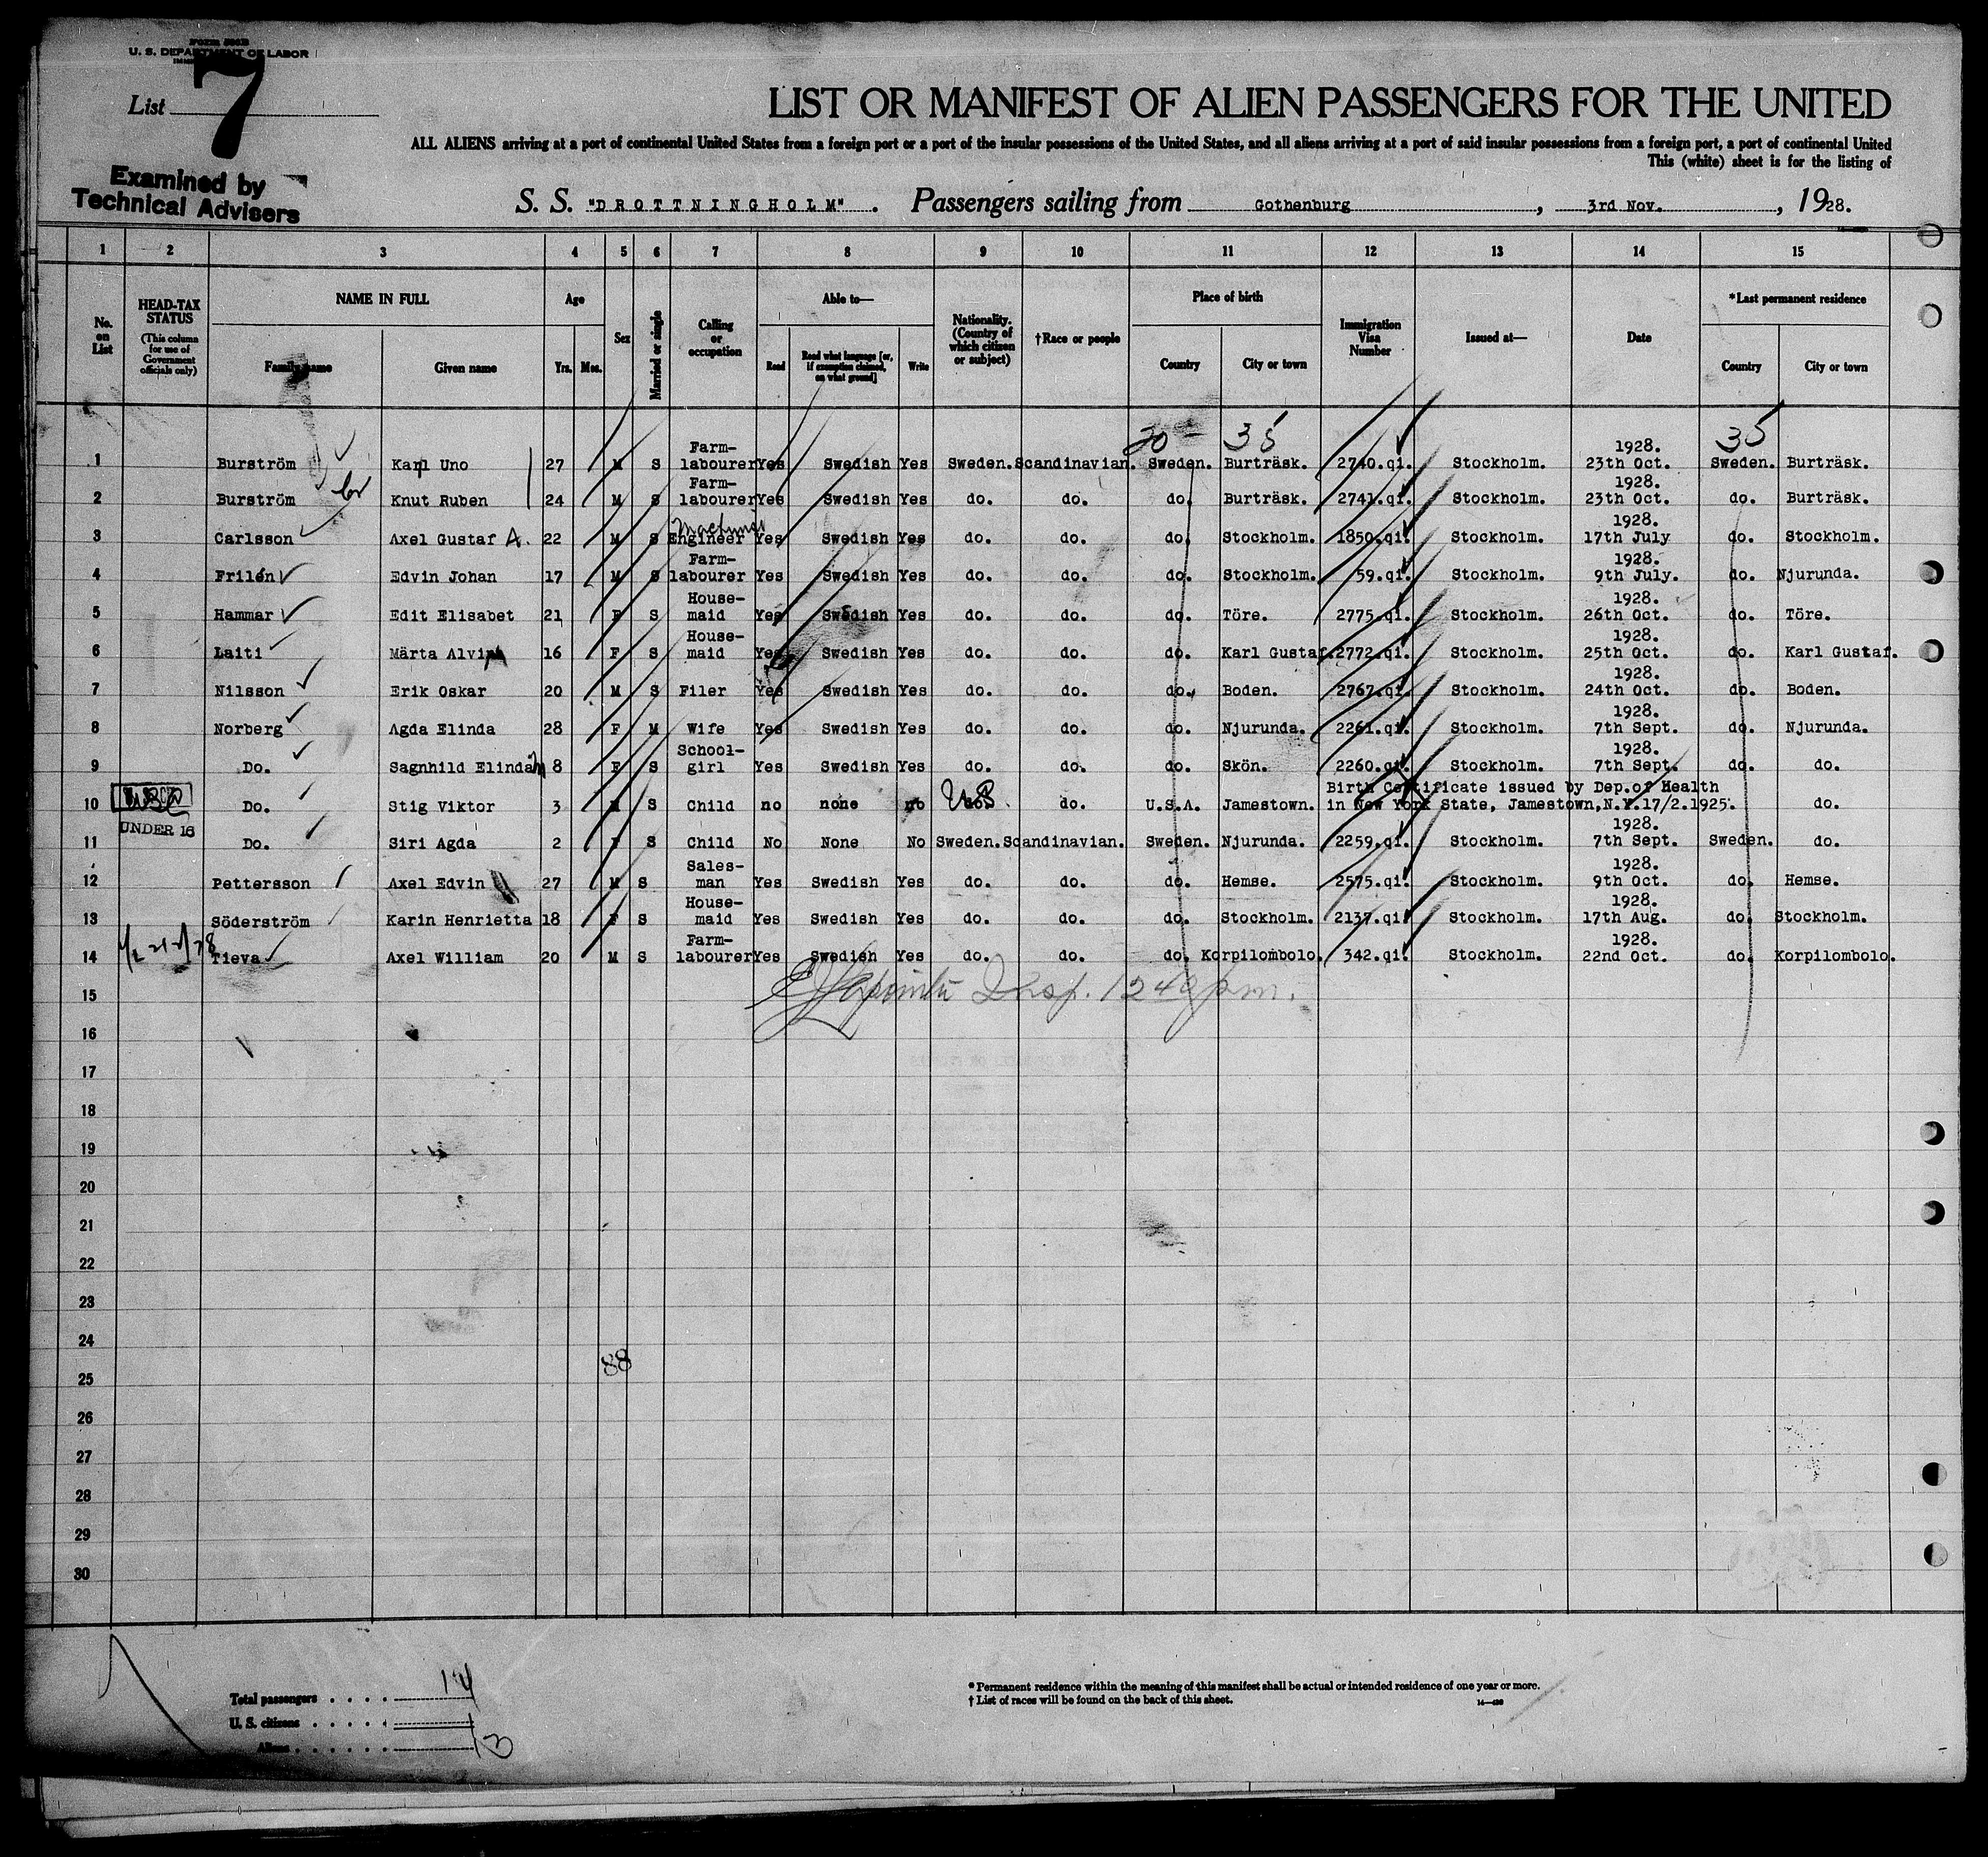 Form 500B
U. S. DEPARTMENT OF LABOR
List 7
Examined by
Technical Advisers
LIST OR MANIFEST OF ALIEN PASSENGERS FOR THE UNITED
ALL ALIENS arriving at a port of continental United States from a foreign port or a port of the insular possessions of the United States, and all aliens arriving at a port of said insular possessions from a foreign port, a port of continental United
This (white) sheet is for the listing of
S. S. "DROTTNINGHOLM". Passengers sailing from Gothenburg, 3rd Nov., 1928.
1 2 3 4 5 6 7 8 9 10 11 12 13 14 15
No. on List
HEAD-TAX STATUS
(This column for use of Government officials only)
NAME IN FULL
Family name Given name
Age
Yrs. Mos.
Sex
Married or single
Calling or occupation
Able to—
Read
Read what language [or, if exemption claimed, on what ground]
Write
Nationality. (Country of which citizen or subject)
†Race or people
Place of birth
Country City or town
Immigration Visa Number
Issued at—
Date
*Last permanent residence
Country City or town
20 - 35 35
1 Burström Karl Uno 27 M S Farm-labourer Yes Swedish Yes Sweden. Scandinavian. Sweden. Burträsk. 2740.qi. Stockholm. 1928. 23th Oct. Sweden. Burträsk.
2 Burström Knut Ruben 24 M S Farm-labourer Yes Swedish Yes do. do. do. Burträsk. 2741.qi. Stockholm. 1928. 23th Oct. do. Burträsk.
3 Carlsson Axel Gustaf A. 22 M S Engineer Machinist Yes Swedish Yes do. do. do. Stockholm. 1850.qi. Stockholm. 1928. 17th July do. Stockholm.
4 Frilén Edvin Johan 17 M S Farm-labourer Yes Swedish Yes do. do. do. Stockholm. 59.qi. Stockholm. 1928. 9th July. do. Njurunda.
5 Hammar Edit Elisabet 21 F S House-maid Yes Swedish Yes do. do. do. Töre. 2775.qi. Stockholm. 1928. 26th Oct. do. Töre.
6 Laiti Märta Alvina 16 F S House-maid Yes Swedish Yes do. do. do. Karl Gustaf. 2772.qi. Stockholm. 1928. 25th Oct. do. Karl Gustaf.
7 Nilsson Erik Oskar 20 M S Filer Yes Swedish Yes do. do. do. Boden. 2767.qi. Stockholm. 1928. 24th Oct. do. Boden.
8 Norberg Agda Elinda 28 F M Wife Yes Swedish Yes do. do. do. Njurunda. 2261.qi. Stockholm. 1928. 7th Sept. do. Njurunda.
9 Do. Sagnhild Elinda 8 F S School-girl Yes Swedish Yes do. do. do. Skön. 2260.qi. Stockholm. 1928. 7th Sept. do. do.
10 USC Do. Stig Viktor 3 M S Child no none no US do. U.S.A. Jamestown. Birth Certificate issued by Dep.of Health in New York State, Jamestown,N.Y.17/2.1925. do.
UNDER 16
11 Do. Siri Agda 2 F S Child No None No Sweden. Scandinavian. Sweden. Njurunda. 2259.qi. Stockholm. 1928. 7th Sept. Sweden. do.
12 Pettersson Axel Edvin 27 M S Sales-man Yes Swedish Yes do. do. do. Hemse. 2575.qi. Stockholm. 1928. 9th Oct. do. Hemse.
13 Söderström Karin Henrietta 18 F S House-maid Yes Swedish Yes do. do. do. Stockholm. 2137.qi. Stockholm. 1928. 17th Aug. do. Stockholm.
14 Tieva Axel William 20 M S Farm-labourer Yes Swedish Yes do. do. do. Korpilombolo. 342.qi. Stockholm. 1928. 22nd Oct. do. Korpilombolo.
15 Insp. 1240 pm.
16
17
18
19
20
21
22
23
24
88
25
26
27
28
29
30
Total passengers . . . . 14
U. S. citizens . . . . . 1
Aliens . . . . . . 13
* Permanent residence within the meaning of this manifest shall be actual or intended residence of one year or more.
† List of races will be found on the back of this sheet.